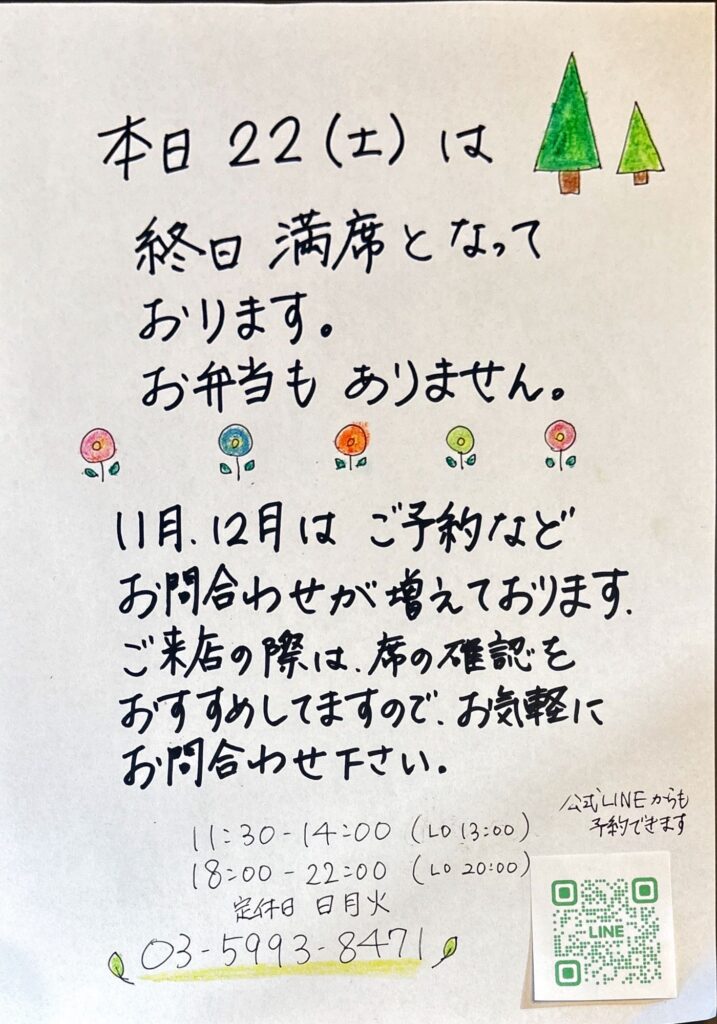 本日 22(土)は
終日 満席となって
おります。
お弁当も ありません。
11月、12月は ご予約など
お問合わせが増えております、
ご来店の際は、席の確認を
おすすめしてますので、お気軽に
お問合わせ下さい。
公式LINEからも
予約できます
11:30-14:00 (LO 13:00)
18:00-22:00 (LO 20:00)
定休日 日月火
03-5993-8471
LINE